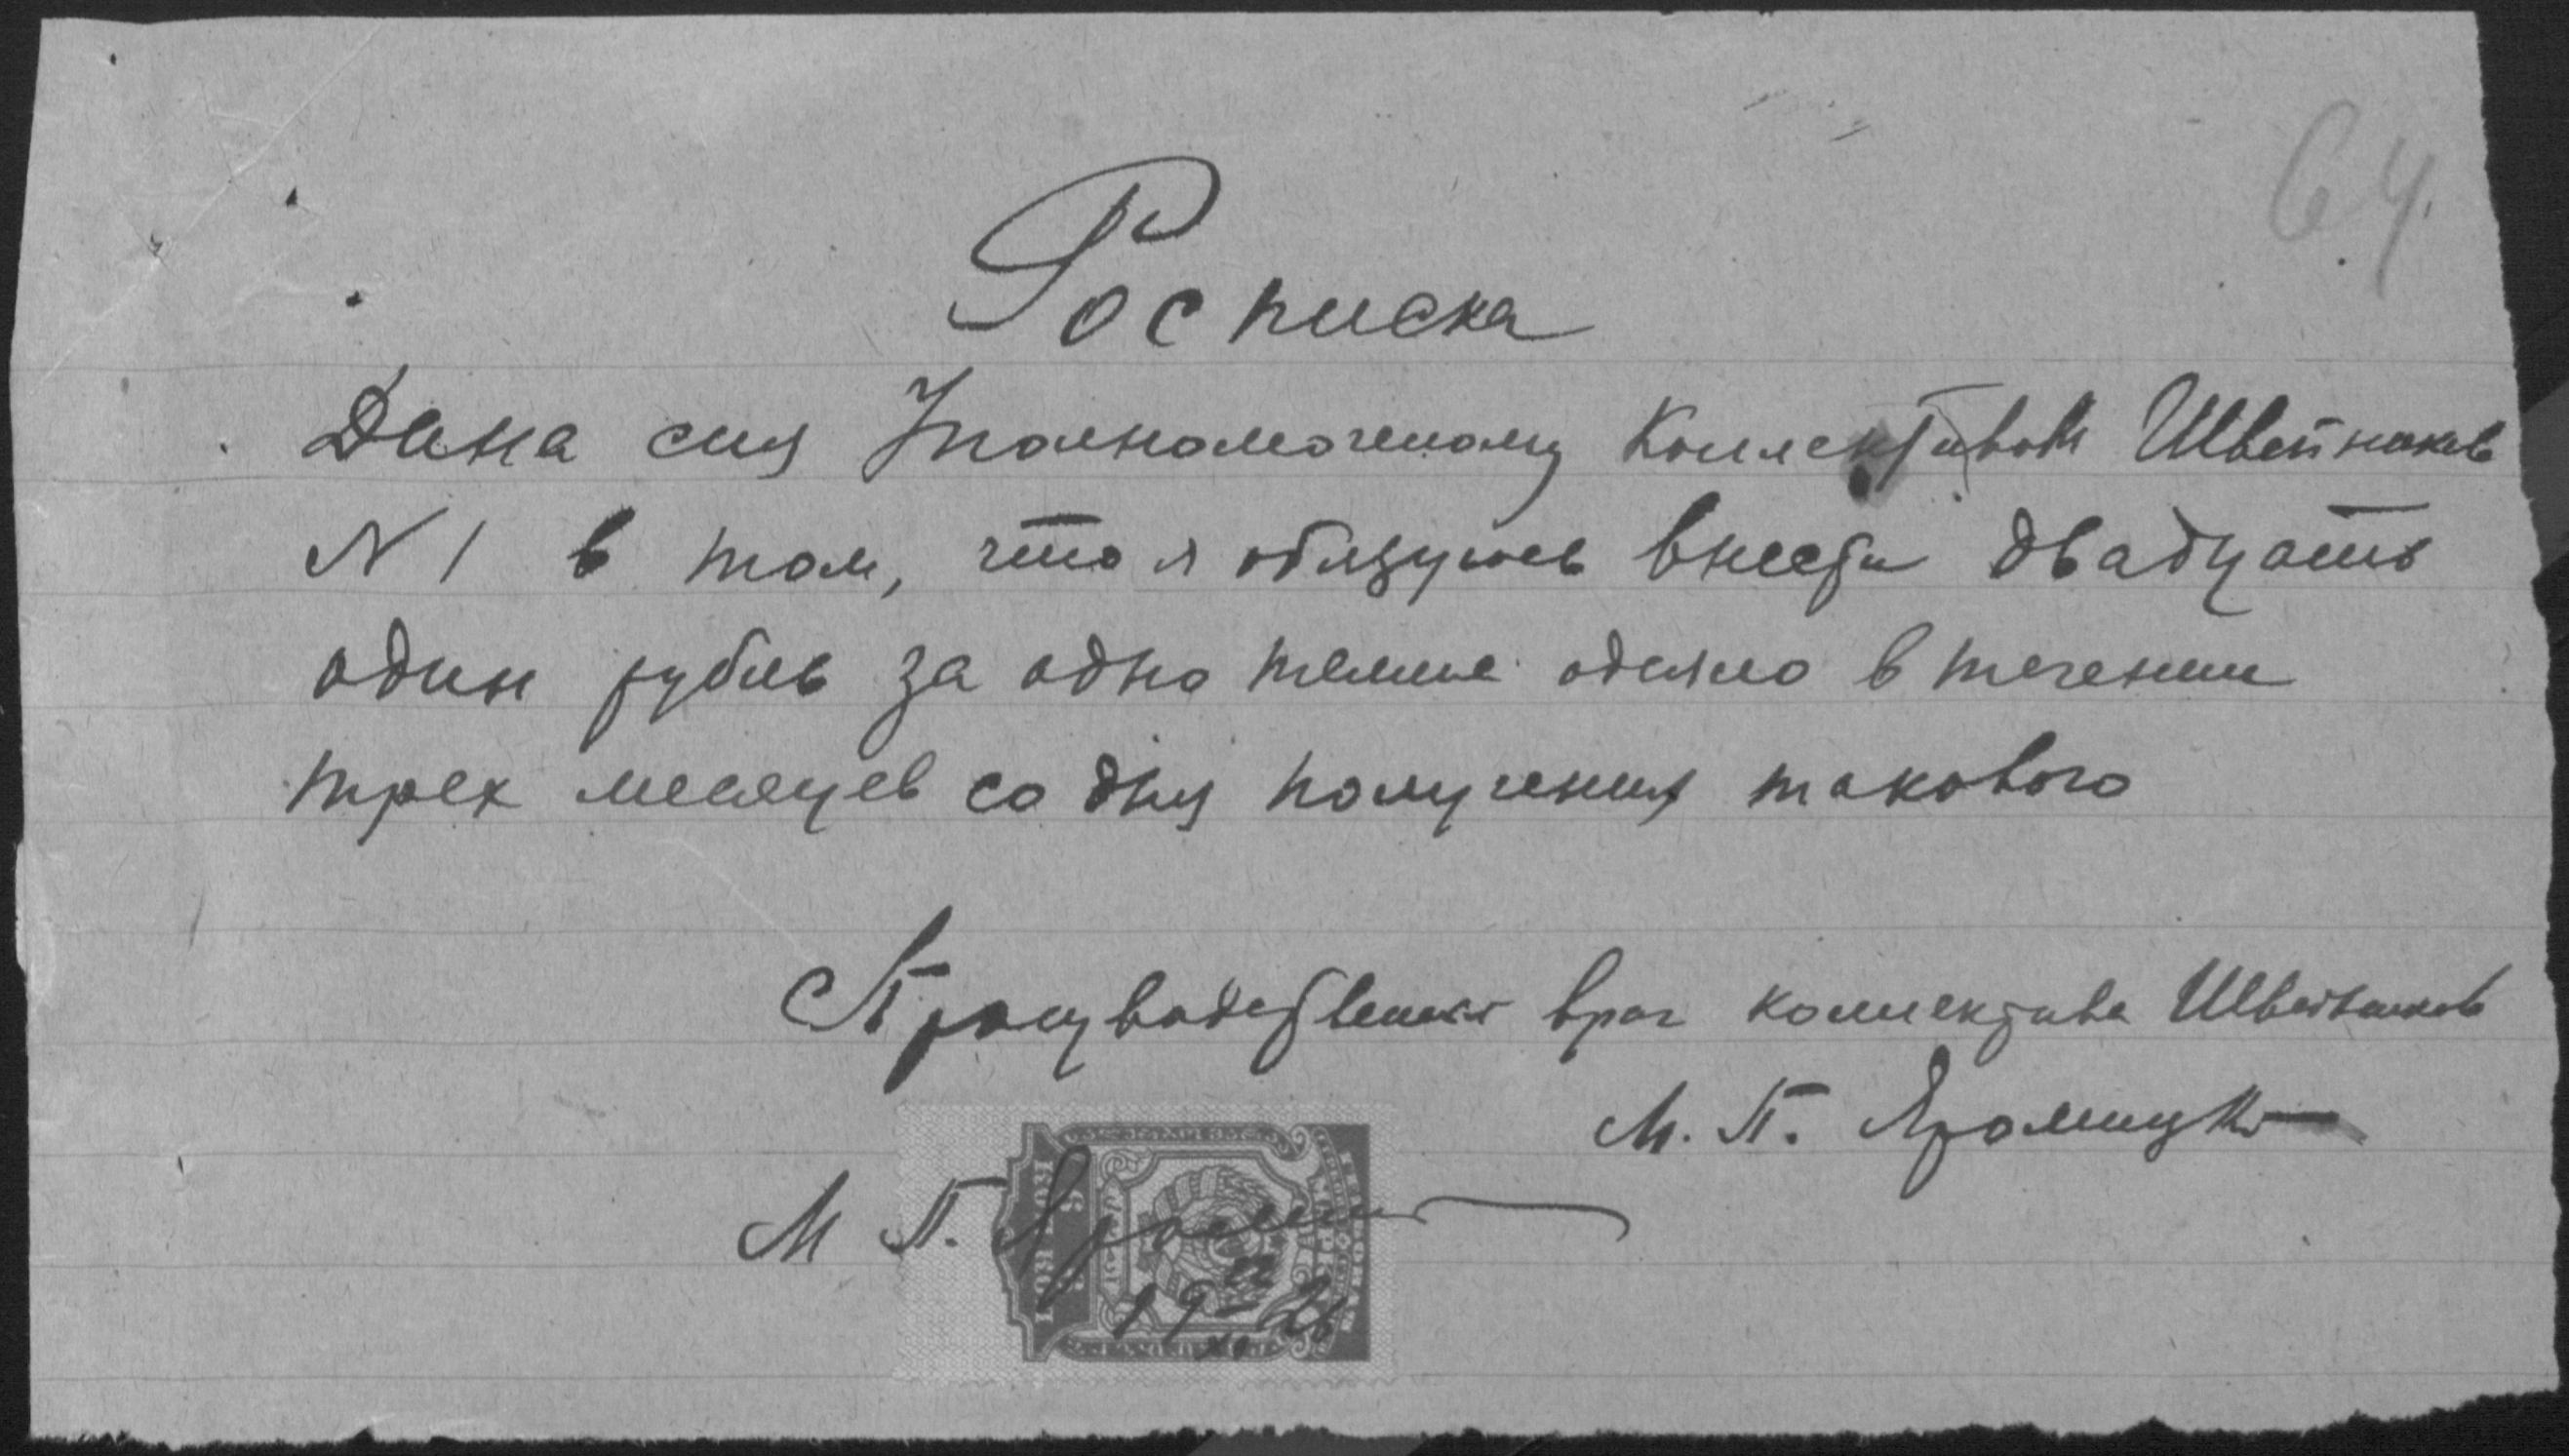 64.
Росписка
Дана сия Уполномоченому Коллективом Швейников
N 1 в том, что я обязуюсь внести двадцать
один рубль за одно теплое одеяло в течении
трех месяцев со дня получения такового
врач коллектива Швейников
М. П. Яромицк
М П. Яроми
19 22/XI 26